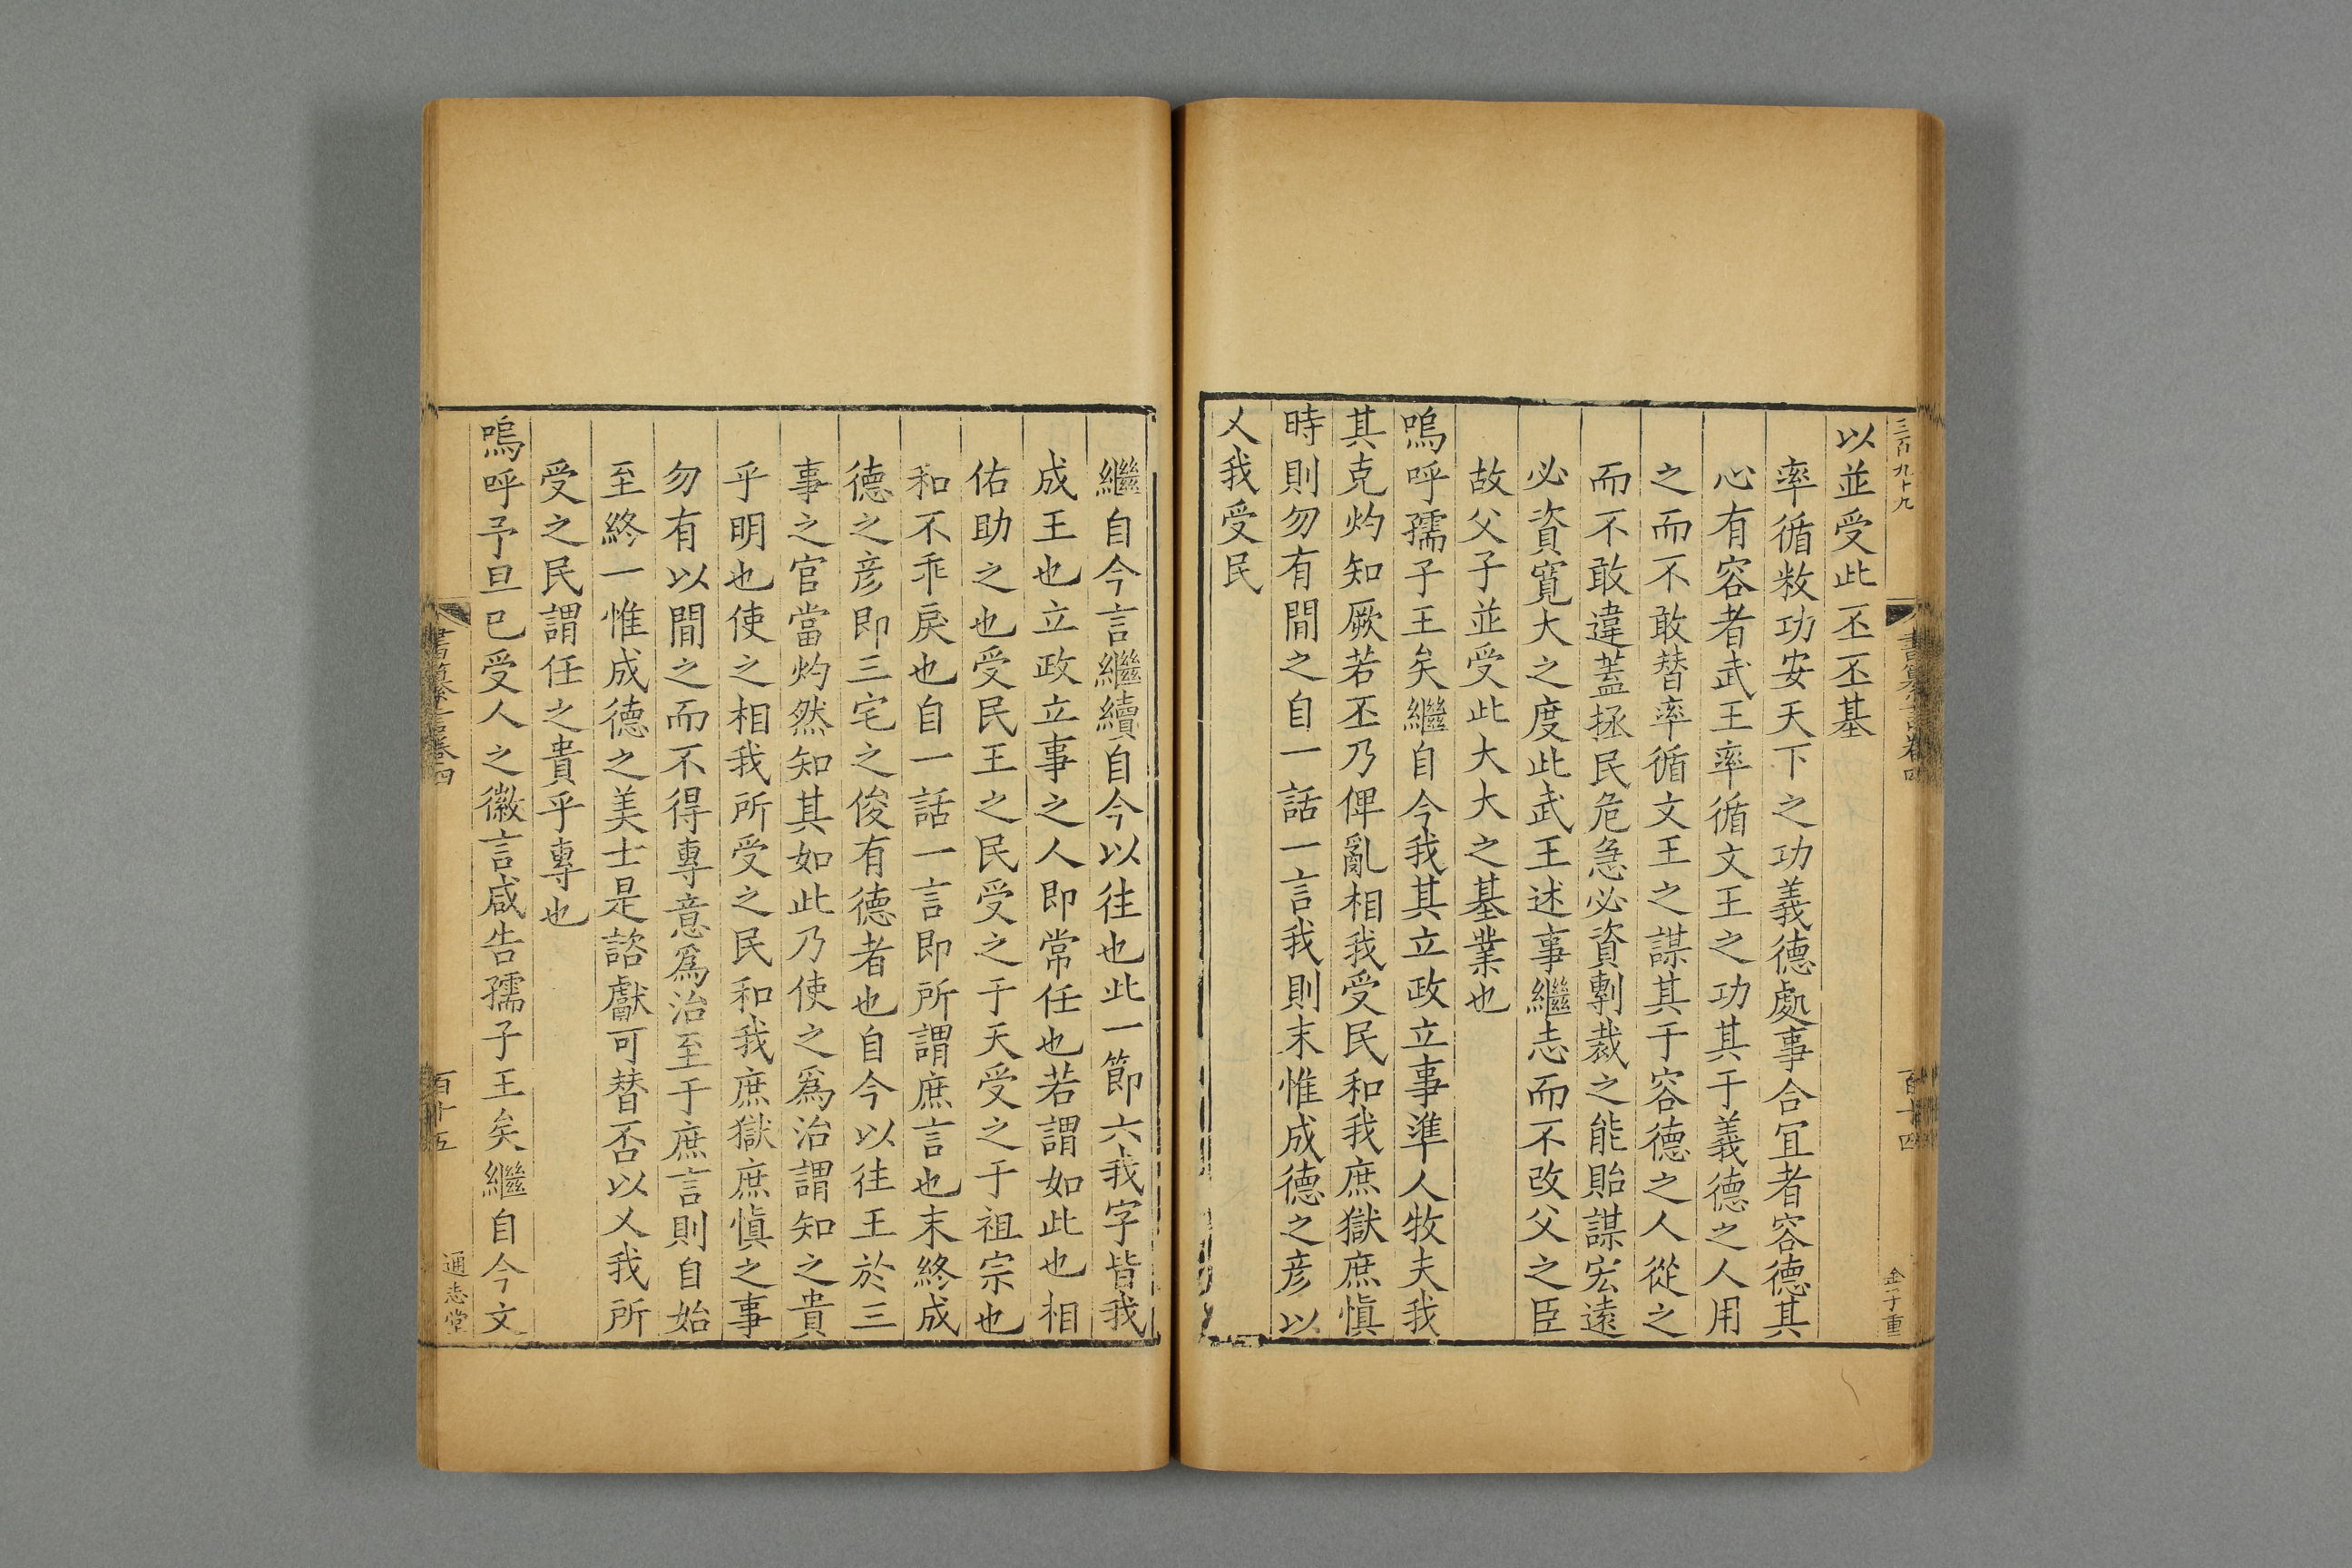 三百九十九
書纂言卷四
百十四
以並受此丕丕基
率循敉功安天下之功義德處事合宜者容德其
心有容者武王率循文王之功其于義德之人用
之而不敢替率循文王之謀其于容德之人從之
而不敢違蓋拯民危急必資剸裁之能貽謀宏遠
必資寬大之度此武王述事繼志而不改父之臣
故父子並受此大大之基業也
嗚呼孺子王矣繼自今我其立政立事準人牧夫我
其克灼知厥若丕乃俾亂相我受民和我庶獄庶慎
時則勿有間之自一話一言我則末惟成德之彥以
乂我受民
繼自今言繼續自今以往也此一節六我字皆我
成王也立政立事之人即常任也若謂如此也相
佑助之也受民王之民受之于天受之于祖宗也
和不乖戾也自一話一言即所謂庶言也末終成
德之彥即三宅之俊有德者也自今以往王於三
事之官當灼然知其如此乃使之為治謂知之貴
乎明也使之相我所受之民和我庶獄庶慎之事
勿有以間之而不得專意為治至于庶言則自始
至終一惟成德之美士是諮獻可替否以乂我所
受之民謂任之貴乎專也
嗚呼予旦已受人之徽言咸告孺子王矣繼自今文
書纂言卷四
百十五
通志堂